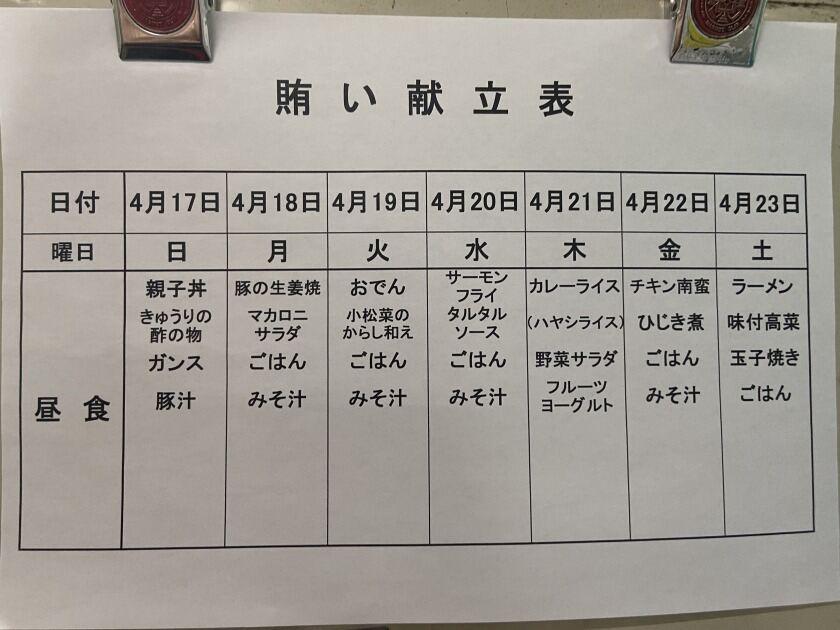 賄い献立表
日付 4月17日 4月18日 4月19日 4月20日 4月21日 4月22日 4月23日
曜日 日 月 火 水 木 金 土
昼食
親子丼
きゅうりの
酢の物
ガンス
豚汁
豚の生姜焼
マカロニ
サラダ
ごはん
みそ汁
おでん
小松菜の
からし和え
ごはん
みそ汁
サーモン
フライ
タルタル
ソース
ごはん
みそ汁
カレーライス
(ハヤシライス)
野菜サラダ
フルーツ
ヨーグルト
チキン南蛮
ひじき煮
ごはん
みそ汁
ラーメン
味付高菜
玉子焼き
ごはん